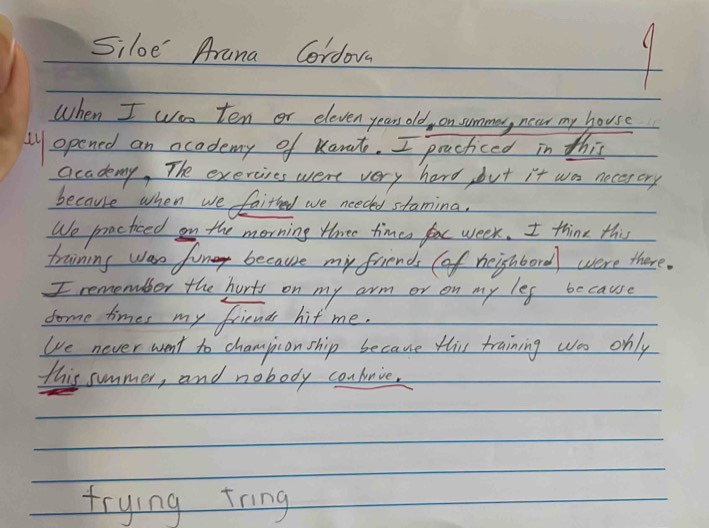 Siloé Arana Córdova
When I was Ten or eleven years old, on summer, near my house
opened an academy of Karate. I practiced in this
academy, The exercises were very hard, but it was necesary
because when we faithed we needed stamina.
We practiced on the morning three times for week. I think this
training was funny because my friends (of neighbord) were there.
I remember the hurts on my arm or on my leg because
some times my friends hit me.
We never went to championship because this training was only
this summer, and nobody continue.
trying tring